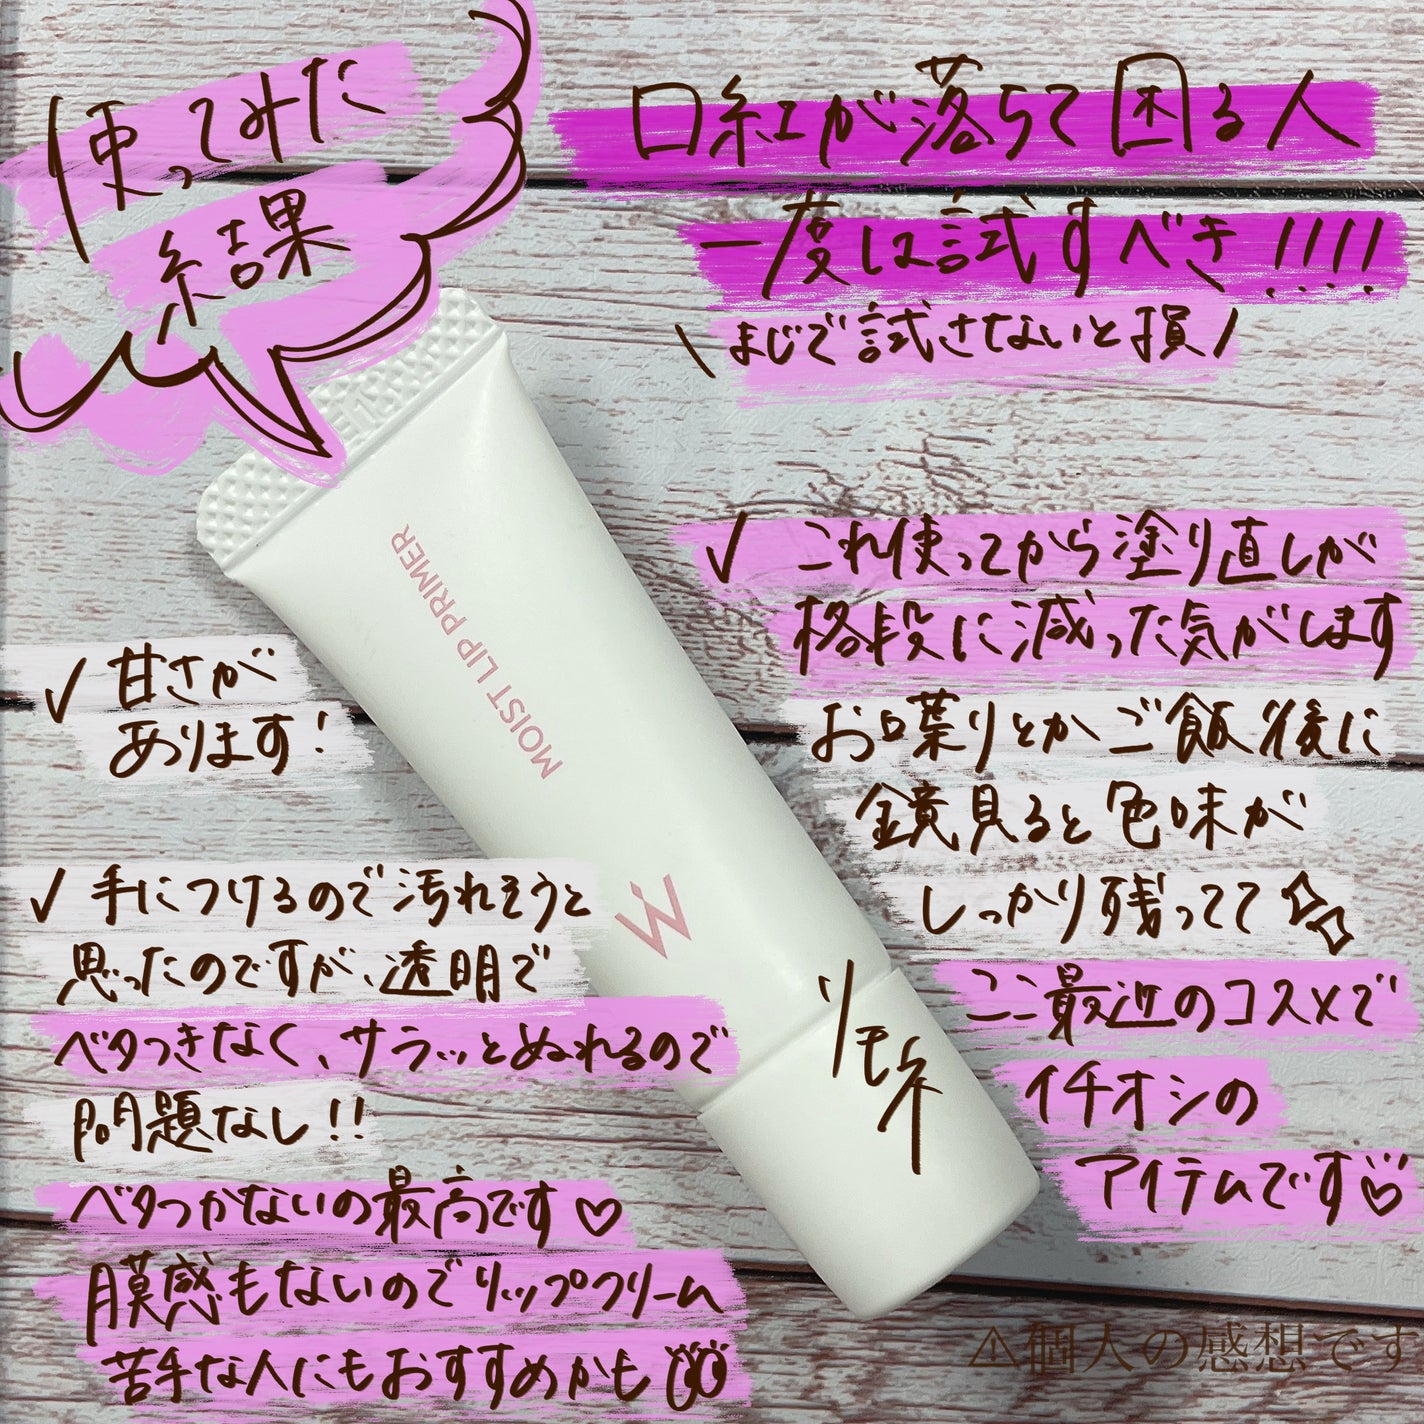 使ってみた
結果
口紅が落ちて困る人
一度は試すべき!!!!
\まじで試さないと損/
✓ これ使ってから塗り直しが
格段に減った気がします
お喋りとかご飯後に
鏡見ると色味が
しっかり残ってて
ここ最近のコスメで
イチオシの
アイテムです♡
✓ 甘さが
あります!
✓ 手につけるので汚れそうと
思ったのですが、透明で
ベタつきなく、サラッとぬれるので
問題なし!!
ベタつかないの最高です♡
膜感もないのでリップクリーム
苦手な人にもおすすめかも
MOIST LIP PRIMER
⚠個人の感想です